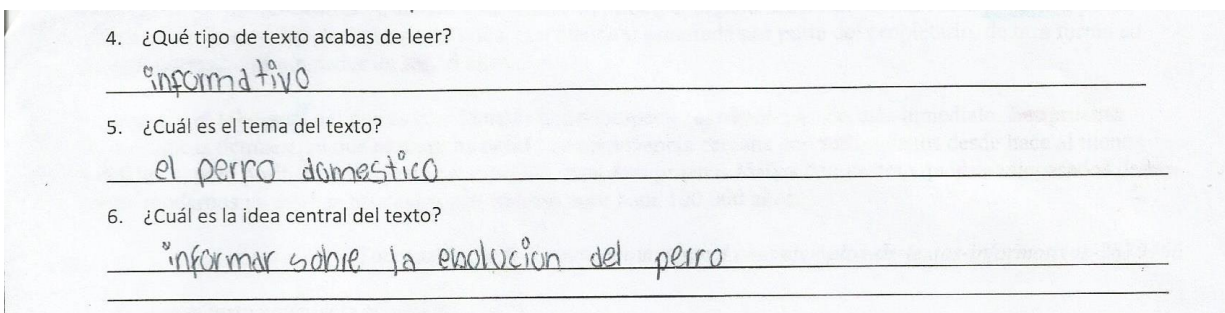 4. ¿Qué tipo de texto acabas de leer?
informativo
5. ¿Cuál es el tema del texto?
el perro domestico
6. ¿Cuál es la idea central del texto?
informar sobre la evolucion del perro